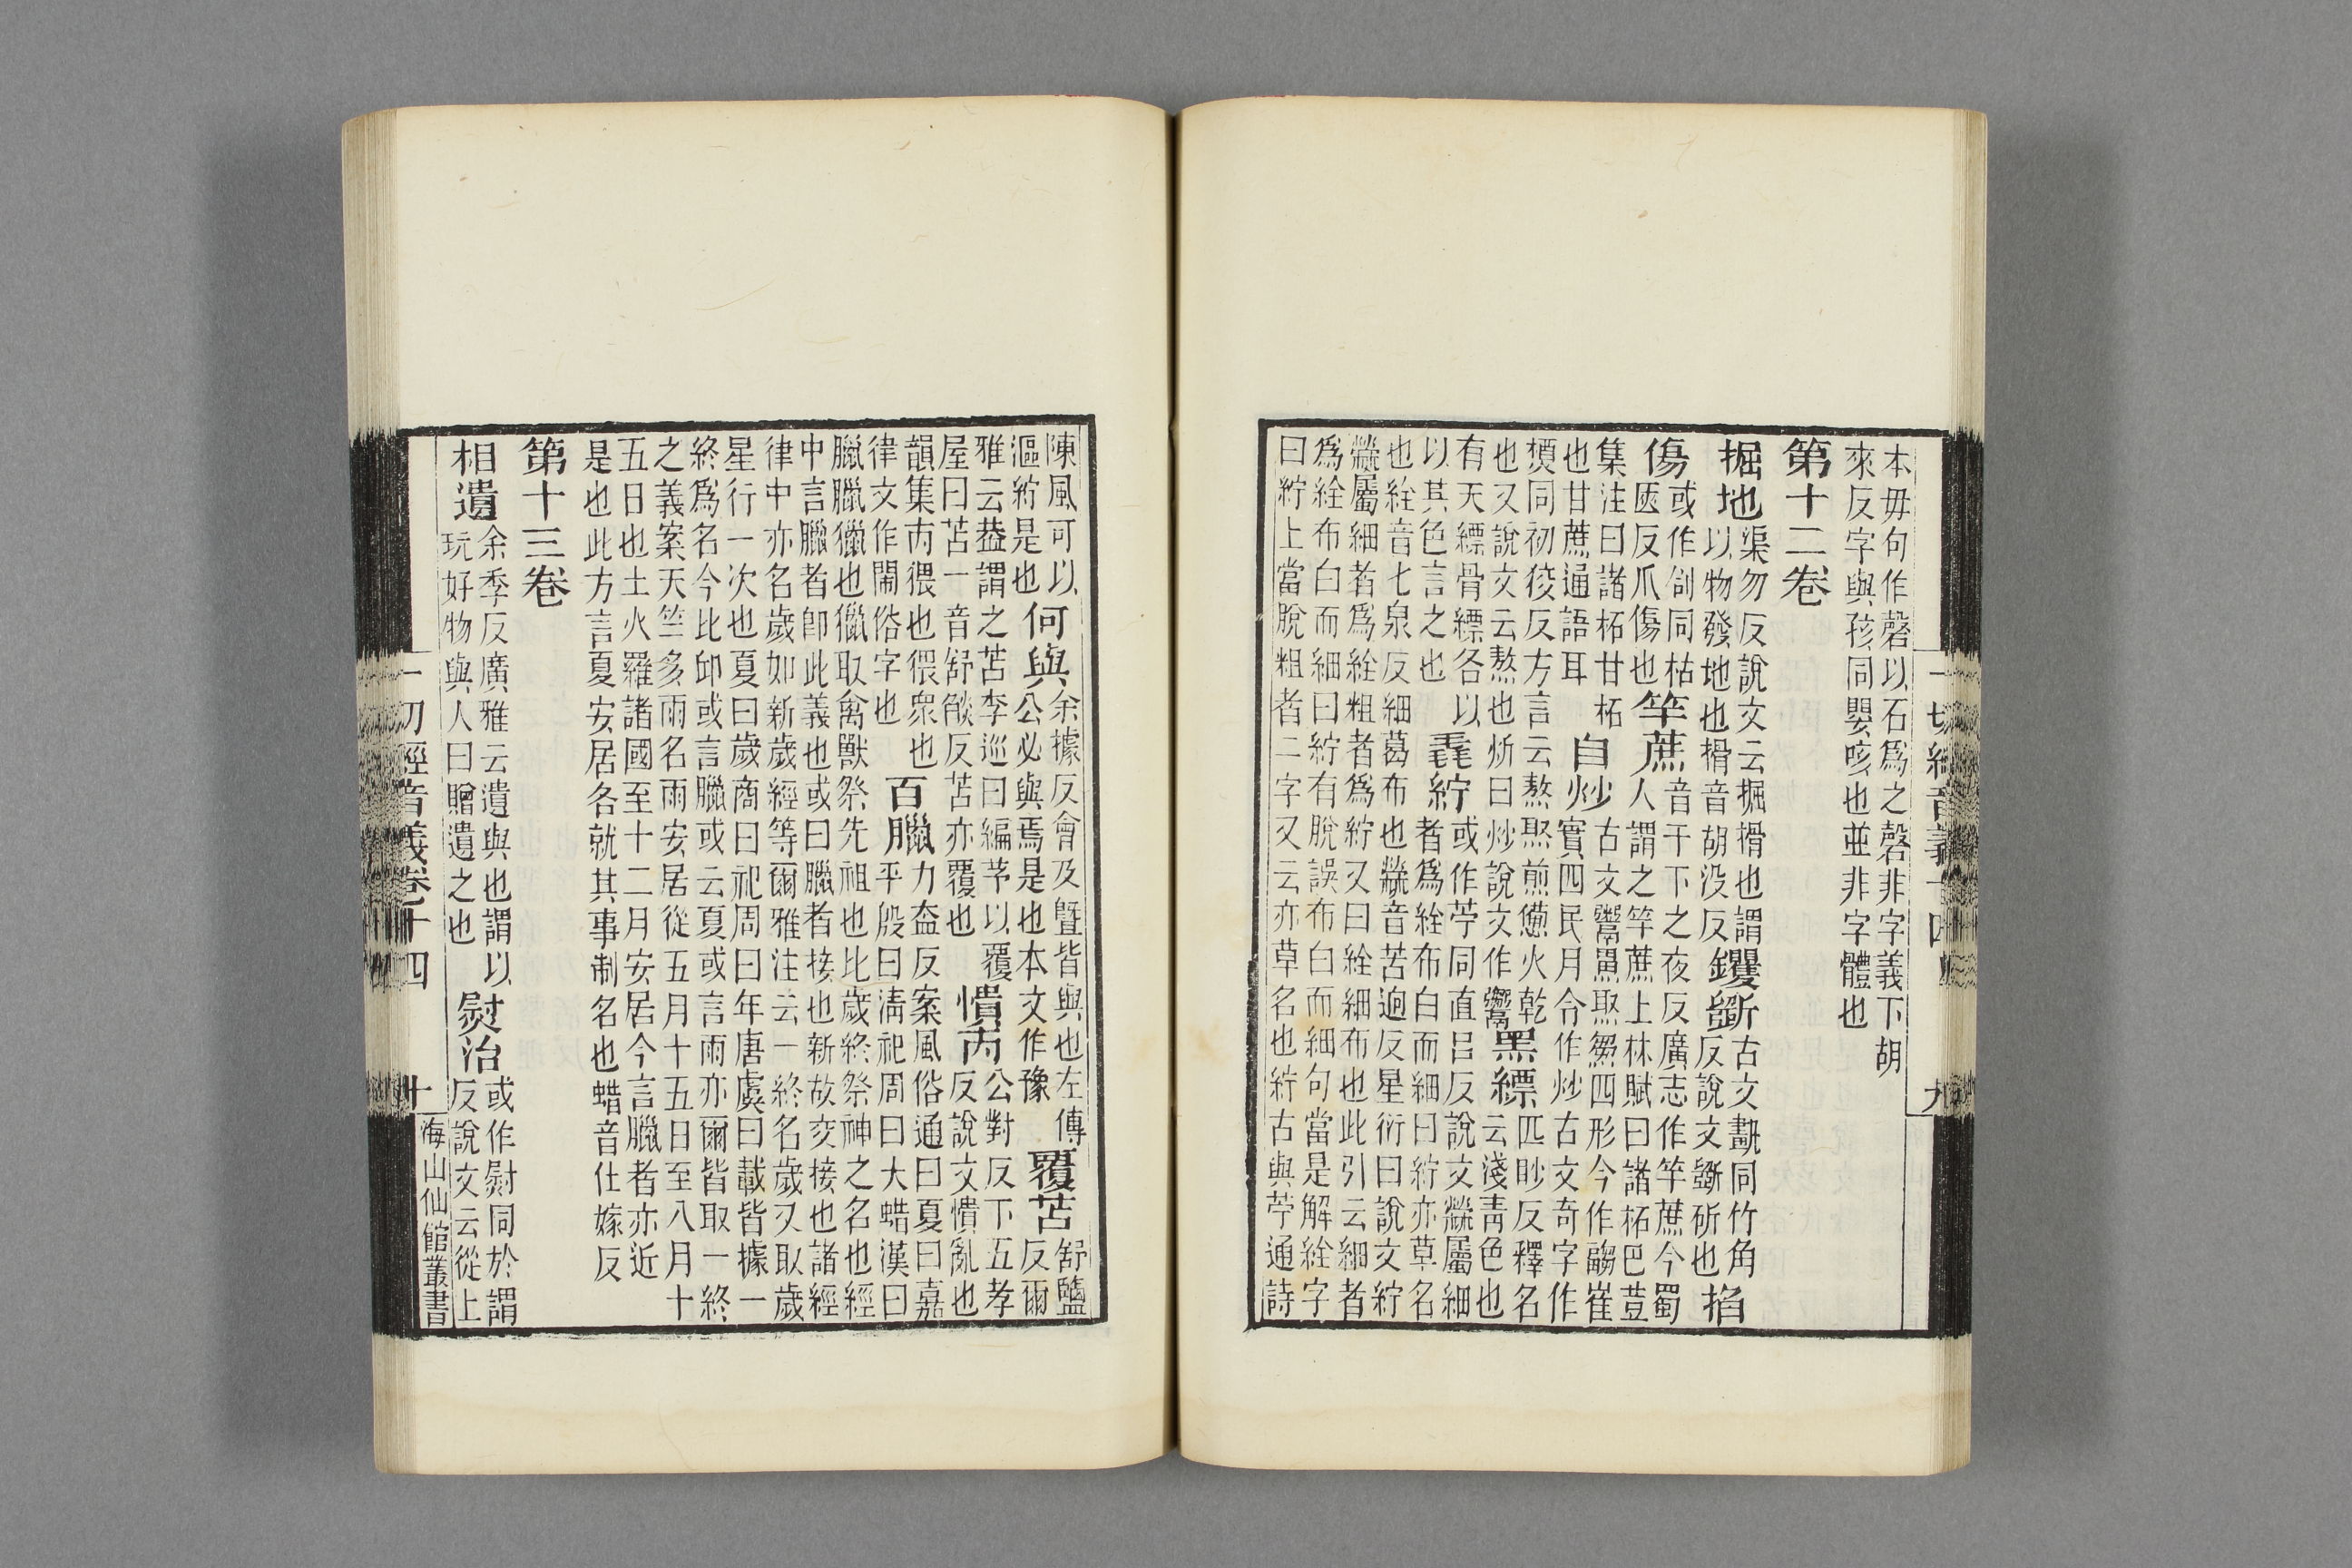 本毋句作磬以石爲之磬非字義下胡
來反字與孩同嬰咳也並非字體也
第十二卷
掘地
渠勿反說文云掘搰也謂
以物發地也搰音胡没反
钁斸
古文斸同竹角
反說文斸斫也
掐
傷
或作刮同枯
㔷反爪傷也
竿蔗
音干下之夜反廣志作竿蔗今蜀
人謂之竿蔗上林賦曰諸柘巴荳
集注曰諸柘甘柘
也甘蔗通語耳
自炒
古文鬻𤋱焣䅳四形今作䎢崔
實四民月令作炒古文奇字作
㷅同初狡反方言云熬焣煎㷶火乾
也又說文云熬也炘曰炒說文作䰞
黑縹
匹眇反釋名
云淺青色也
有天縹骨縹各以
以其色言之也
毳紵
或作苧同直呂反說文䌫屬細
者爲絟布白而細曰紵亦草名
也絟音七泉反細葛布也䌫音苦迥反星衍曰說文紵
䌫屬細者爲絟粗者爲紵又曰絟細布也此引云細者
爲絟布白而細曰紵有脫誤布白而細句當是解絟字
曰紵上當脫粗者二字又云亦草名也紵古與苧通詩
一切經音義十四
九
陳風可以
漚紵是也
何與
余據反會及曁皆與也左傳
公必與焉是也本文作豫
覆苫
舒鹽
反爾
雅云葢謂之苫李巡曰編茅以覆
屋曰苫一音舒𦦨反苫亦覆也
憒丙
公對反下五孝
反說文憒亂也
韻集丙猥也猥衆也
律文作閙俗字也
百臘
力盍反案風俗通曰夏曰嘉
平殷曰淸祀周曰大蜡漢曰
臘臘獵也獵取禽獸祭先祖也比歲終祭神之名也經
中言臘者卽此義也或曰臘者接也新故交接也諸經
律中亦名歲如新歲經等爾雅注云一終名歲又取歲
星行一次也夏曰歲商曰祀周曰年唐虞曰載皆據一
終爲名今比卬或言臘或云夏或言雨亦爾皆取一終
之義案天竺多雨名雨安居從五月十五日至八月十
五日也土火羅諸國至十二月安居今言臘者亦近
是也此方言夏安居各就其事制名也蜡音仕嫁反
第十三卷
相遺
余季反廣雅云遺與也謂以
玩好物與人曰贈遺之也
熨治
或作尉同於謂
反說文云從上
一切經音義卷十四
十
海山仙館叢書